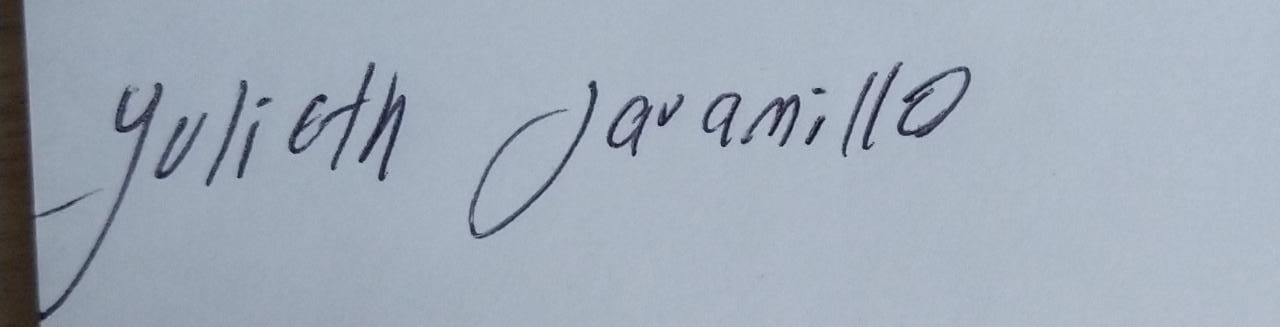 yulieth Jaramillo